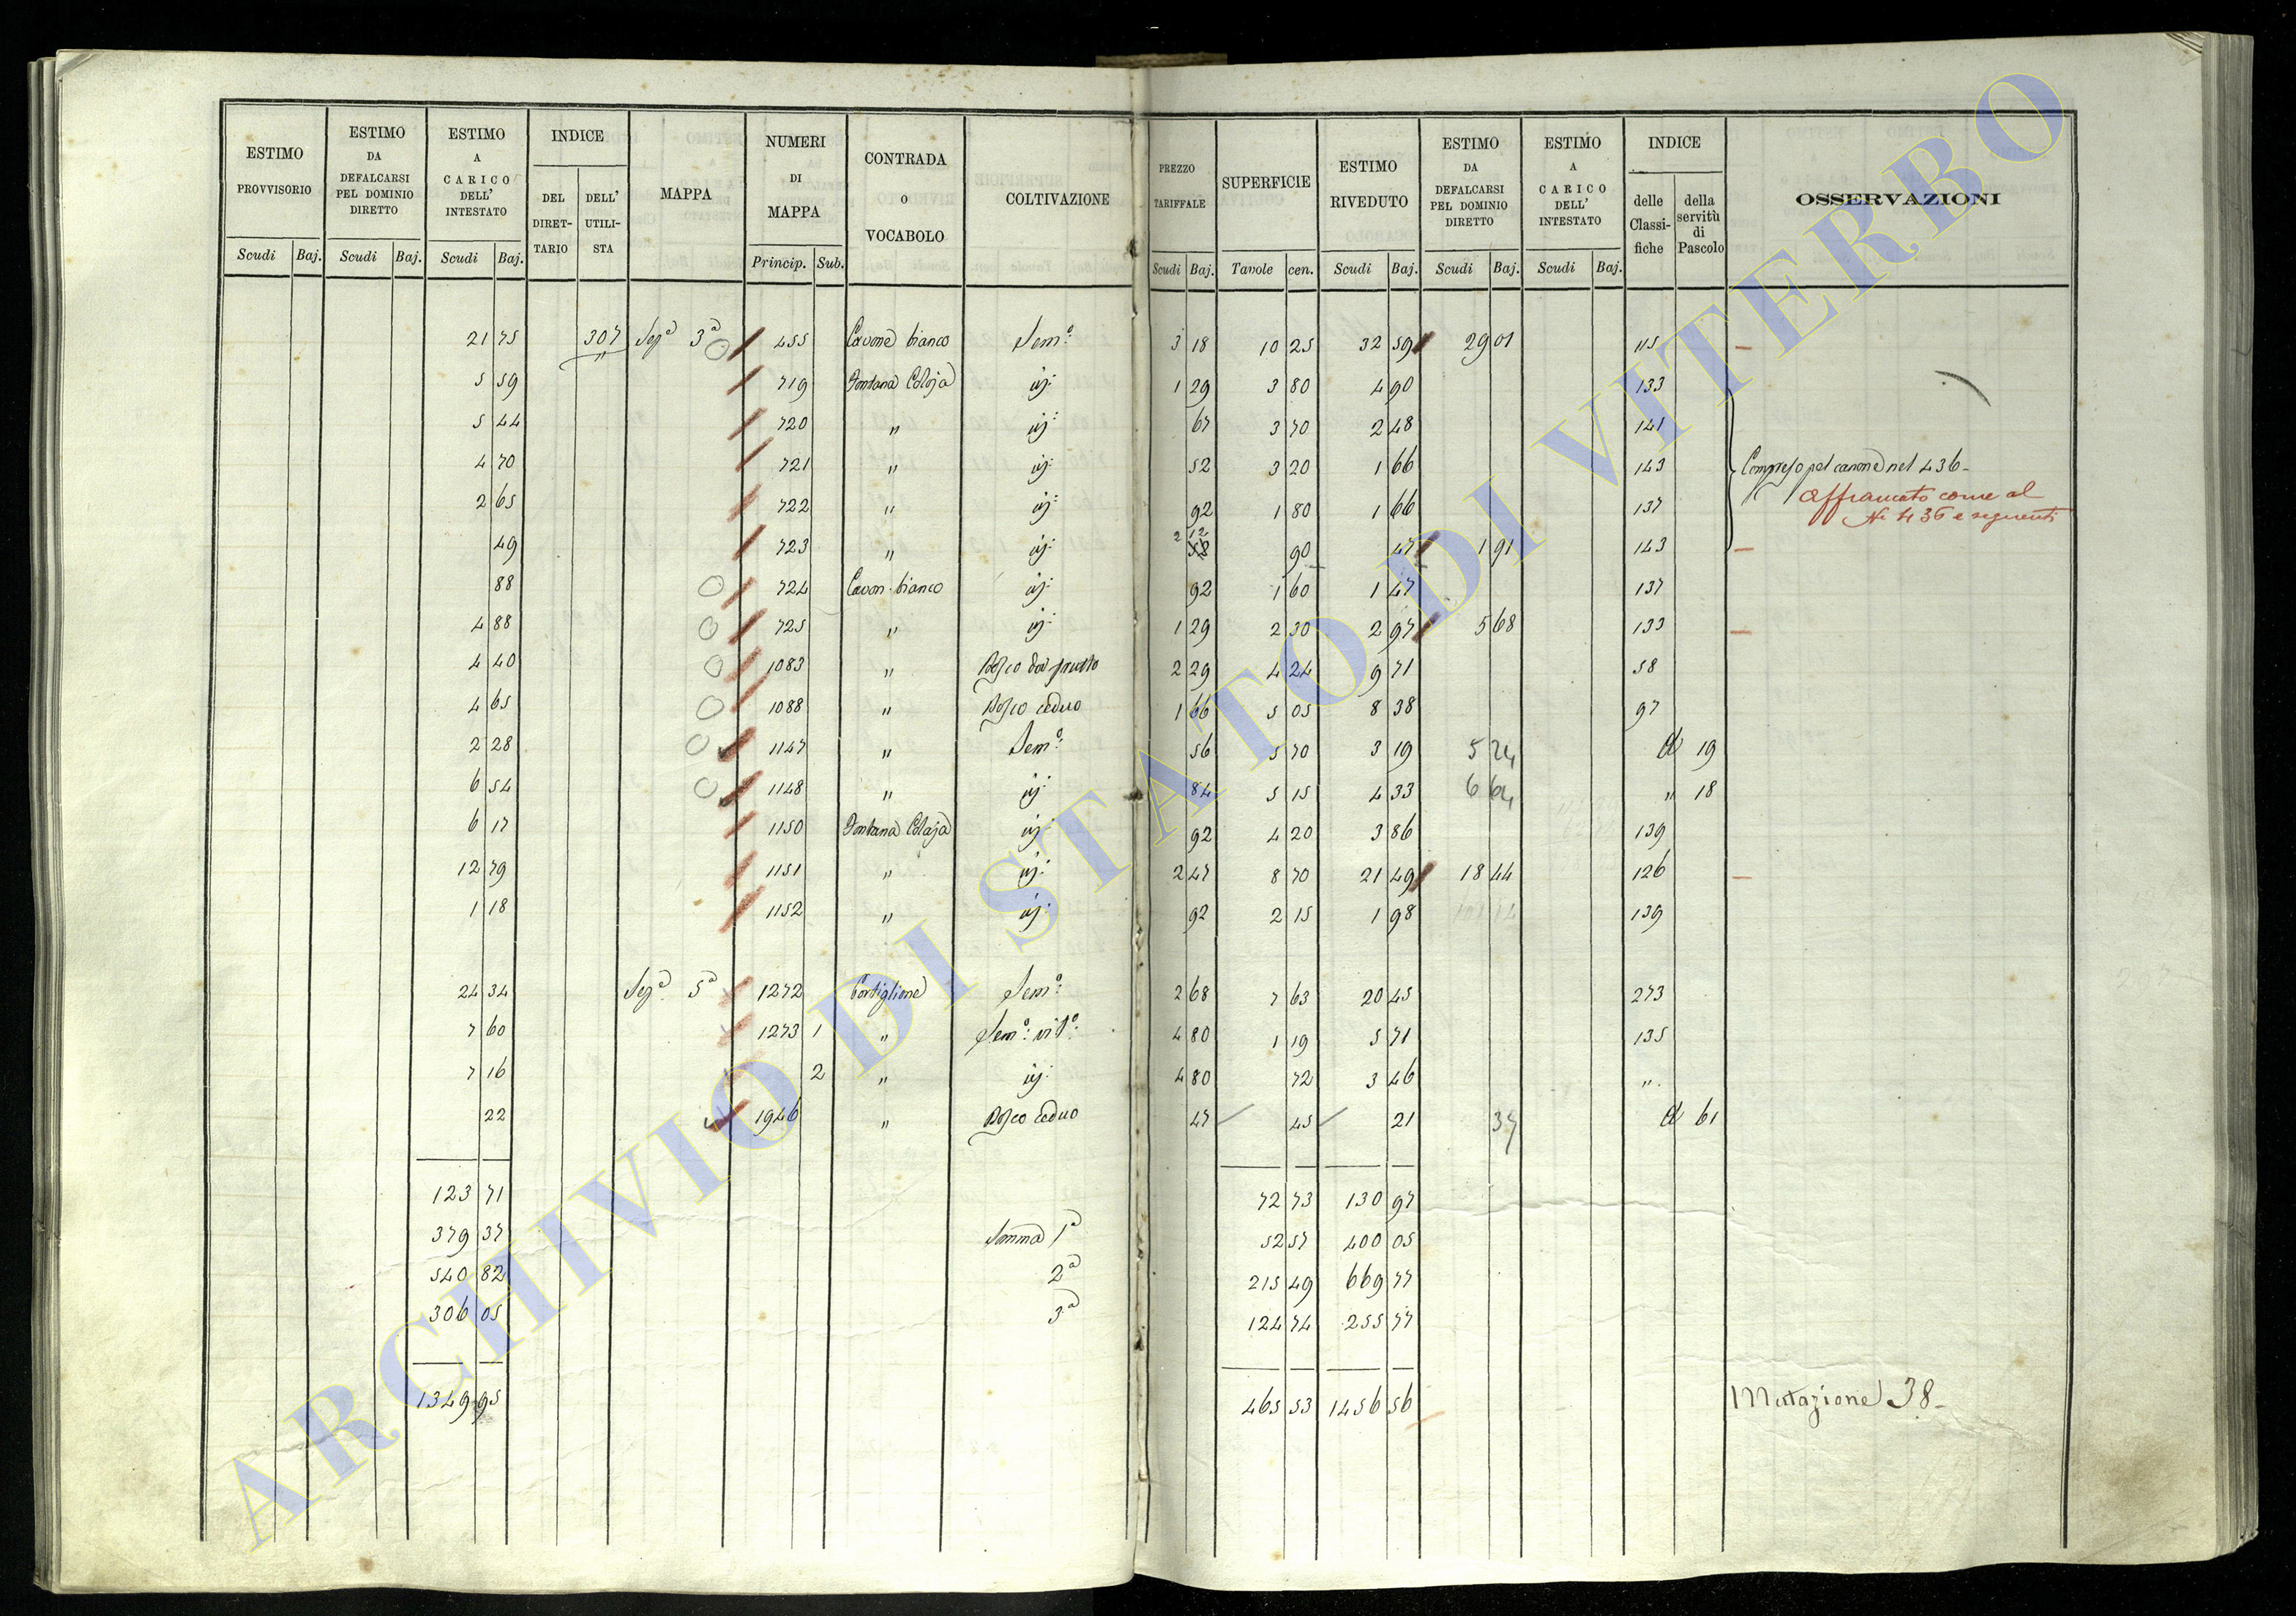 ESTIMO PROVVISORIO | ESTIMO DA DEFALCARSI PEL DOMINIO DIRETTO | ESTIMO A CARICO DELL' INTESTATO | INDICE | MAPPA | NUMERI DI MAPPA | CONTRADA O VOCABOLO | COLTIVAZIONE | PREZZO TARIFFALE | SUPERFICIE | ESTIMO RIVEDUTO | ESTIMO DA DEFALCARSI PEL DOMINIO DIRETTO | ESTIMO A CARICO DELL' INTESTATO | INDICE | OSSERVAZIONI
DEL DIRET-TARIO | DELL' UTILI-STA | delle Classi-fiche | della servitù di Pascolo
Scudi | Baj. | Scudi | Baj. | Scudi | Baj. | Princip. | Sub. | Scudi | Baj. | Tavole | cen. | Scudi | Baj. | Scudi | Baj. | Scudi | Baj.
21 75 | 307 | Sez.a 3a | 455 | Cavone bianco | Sem.o | 3 18 | 10 25 | 32 59 | 29 01 | 115
5 59 | 719 | Fontana Colaja | ij: | 1 29 | 3 80 | 4 90 | 133
5 44 | 720 | " | ij: | 67 | 3 70 | 2 48 | 141
4 70 | 721 | " | ij: | 52 | 3 20 | 1 66 | 143 | Compreso pel canone nel 436-
2 65 | 722 | " | ij: | 92 | 1 80 | 1 66 | 137 | Affrancato come al
N. 436 e seguenti
49 | 723 | " | ij: | 2 12 | 90 | 47 | 1 91 | 143
88 | 724 | Cavon. bianco | ij: | 92 | 1 60 | 1 47 | 137
4 88 | 725 | " | ij: | 1 29 | 2 30 | 2 97 | 5 68 | 133
4 40 | 1083 | " | Bosco da frutto | 2 29 | 4 24 | 9 71 | 58
4 65 | 1088 | " | Bosco ceduo | 1 66 | 5 05 | 8 38 | 97
2 28 | 1147 | " | Sem.o | 56 | 5 70 | 3 19 | 5 24 | 19
6 54 | 1148 | " | ij: | 84 | 5 15 | 4 33 | 6 64 | " 18
6 17 | 1150 | Fontana Colaja | ij: | 92 | 4 20 | 3 86 | 139
12 79 | 1151 | " | ij: | 2 47 | 8 70 | 21 49 | 18 44 | 126
1 18 | 1152 | " | ij: | 92 | 2 15 | 1 98 | 139
24 34 | Sez.a 5a | 1272 | Cortiglione | Sem.o | 2 68 | 7 63 | 20 45 | 273
7 60 | 1273 | 1 | " | Sem.o vit.o | 4 80 | 1 19 | 5 71 | 135
7 16 | 2 | " | ij: | 4 80 | 72 | 3 46 | "
22 | 1946 | " | Bosco ceduo | 47 | 45 | 21 | 37 | 61
123 71 | 72 73 | 130 97
379 37 | Somma 1a | 52 57 | 400 05
540 82 | 2a | 215 49 | 669 77
306 05 | 3a | 124 74 | 255 77
1349 95 | 465 53 | 1456 56 | Mutazione 38-
ARCHIVIO DI STATO DI VITERBO